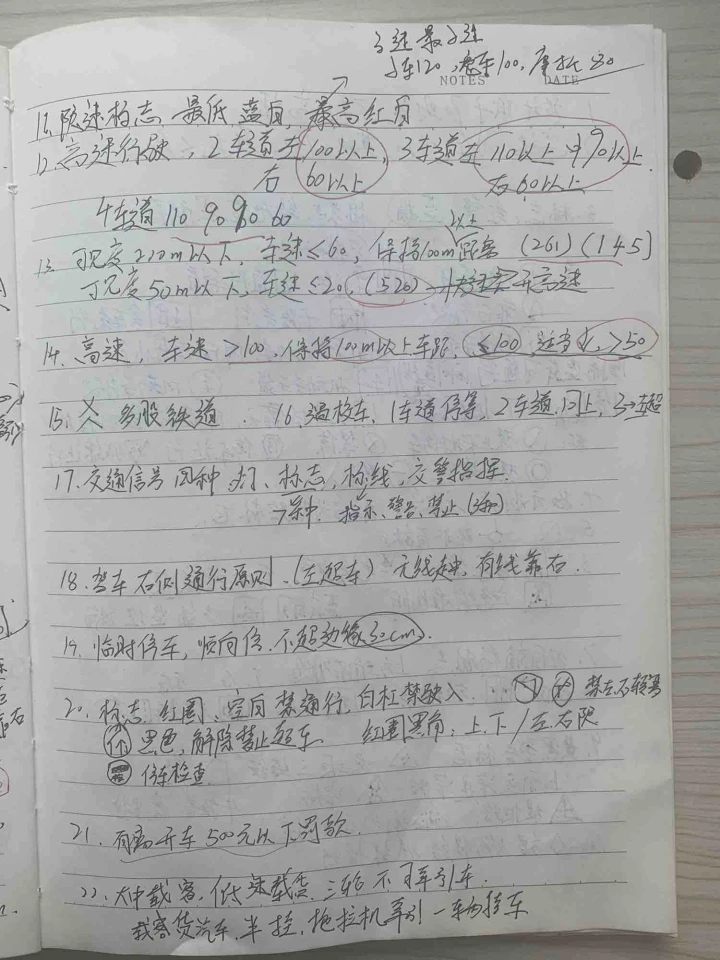 高速最高速
小车120,客车100,摩托80
NOTES DATE
11. 限速标志 最低 蓝白, 最高红白
12. 高速行驶, 2车道左100以上, 3车道左110以上 中90以上.
右60以上 右60以上
4车道 110 90 90 60
以上
13. 可见度200m以下, 车速≤60, 保持100m距离 (261)(145)
可见度50m以下, 车速≤20, (520) 开高速
14. 高速, 车速>100, 保持100m以上车距, ≤100, 适当小, >50
15. 多股铁道 . 16. 遇校车, 1车道停等, 2车道同上, 3→左超
17. 交通信号四种 灯、标志, 标线, 交警指挥.
指示、警告、禁止(3种)
18. 驾车右侧通行原则.(左超车) 无线走中, 有线靠右.
19. 临时停车, 顺向停. 不超边缘30cm.
20. 标志, 红圈、空白 禁通行, 白杠禁驶入. 禁左右转弯
黑色, 解除禁止超车 红圈黑角, 上.下/左.右限
停车检查.
21. 有病开车500元以下罚款.
22. 大中载客, 低速载货, 三轮不可牵引车.
载客货汽车, 半挂, 拖拉机牵引一车挂车